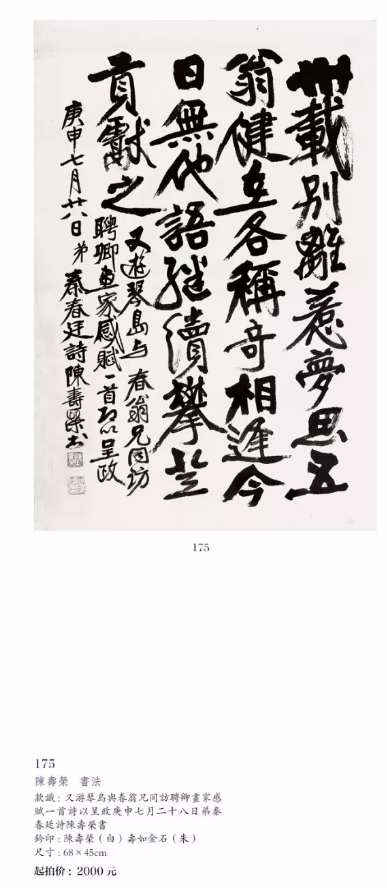 卅載别離惹夢思五
翁健在各稱奇相逢今
日無他語继續攀登
貢獻之
又遊琴島与春翁兄同坊
聘卿画家感賦一首以呈政
庚申七月廿八日弟秦春廷詩陳壽榮书
175
175
陳壽榮 書法
款識：又游琴島與春翁兄同訪聘卿畫家感
賦一首詩以呈政庚申七月二十八日弟秦
春廷詩陳壽榮書
鈐印：陳壽榮（白）壽如金石（朱）
尺寸：68×45cm
起拍價：2000 元